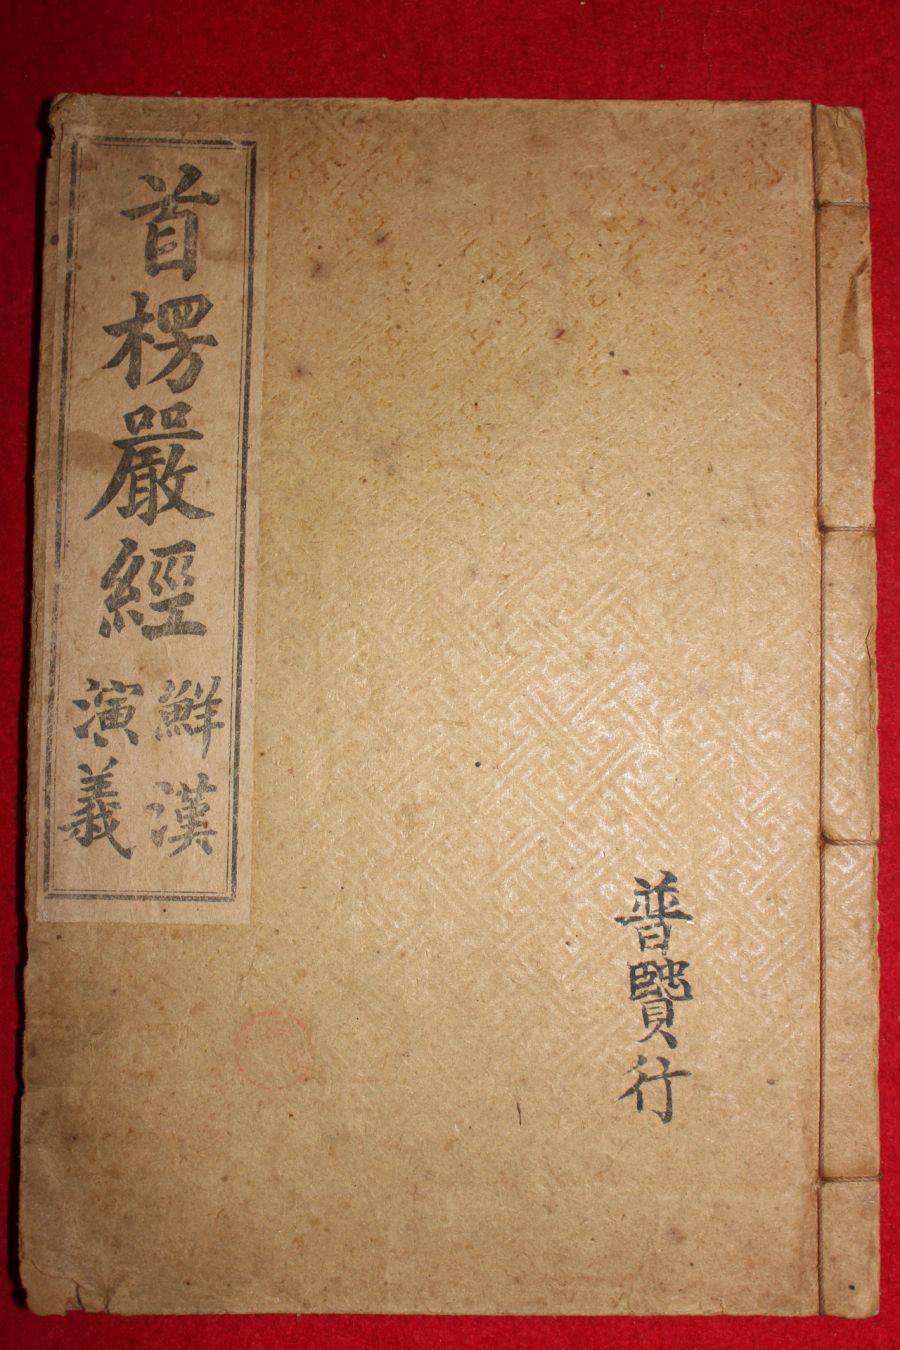 首楞嚴經
鮮漢
演義
普賢行